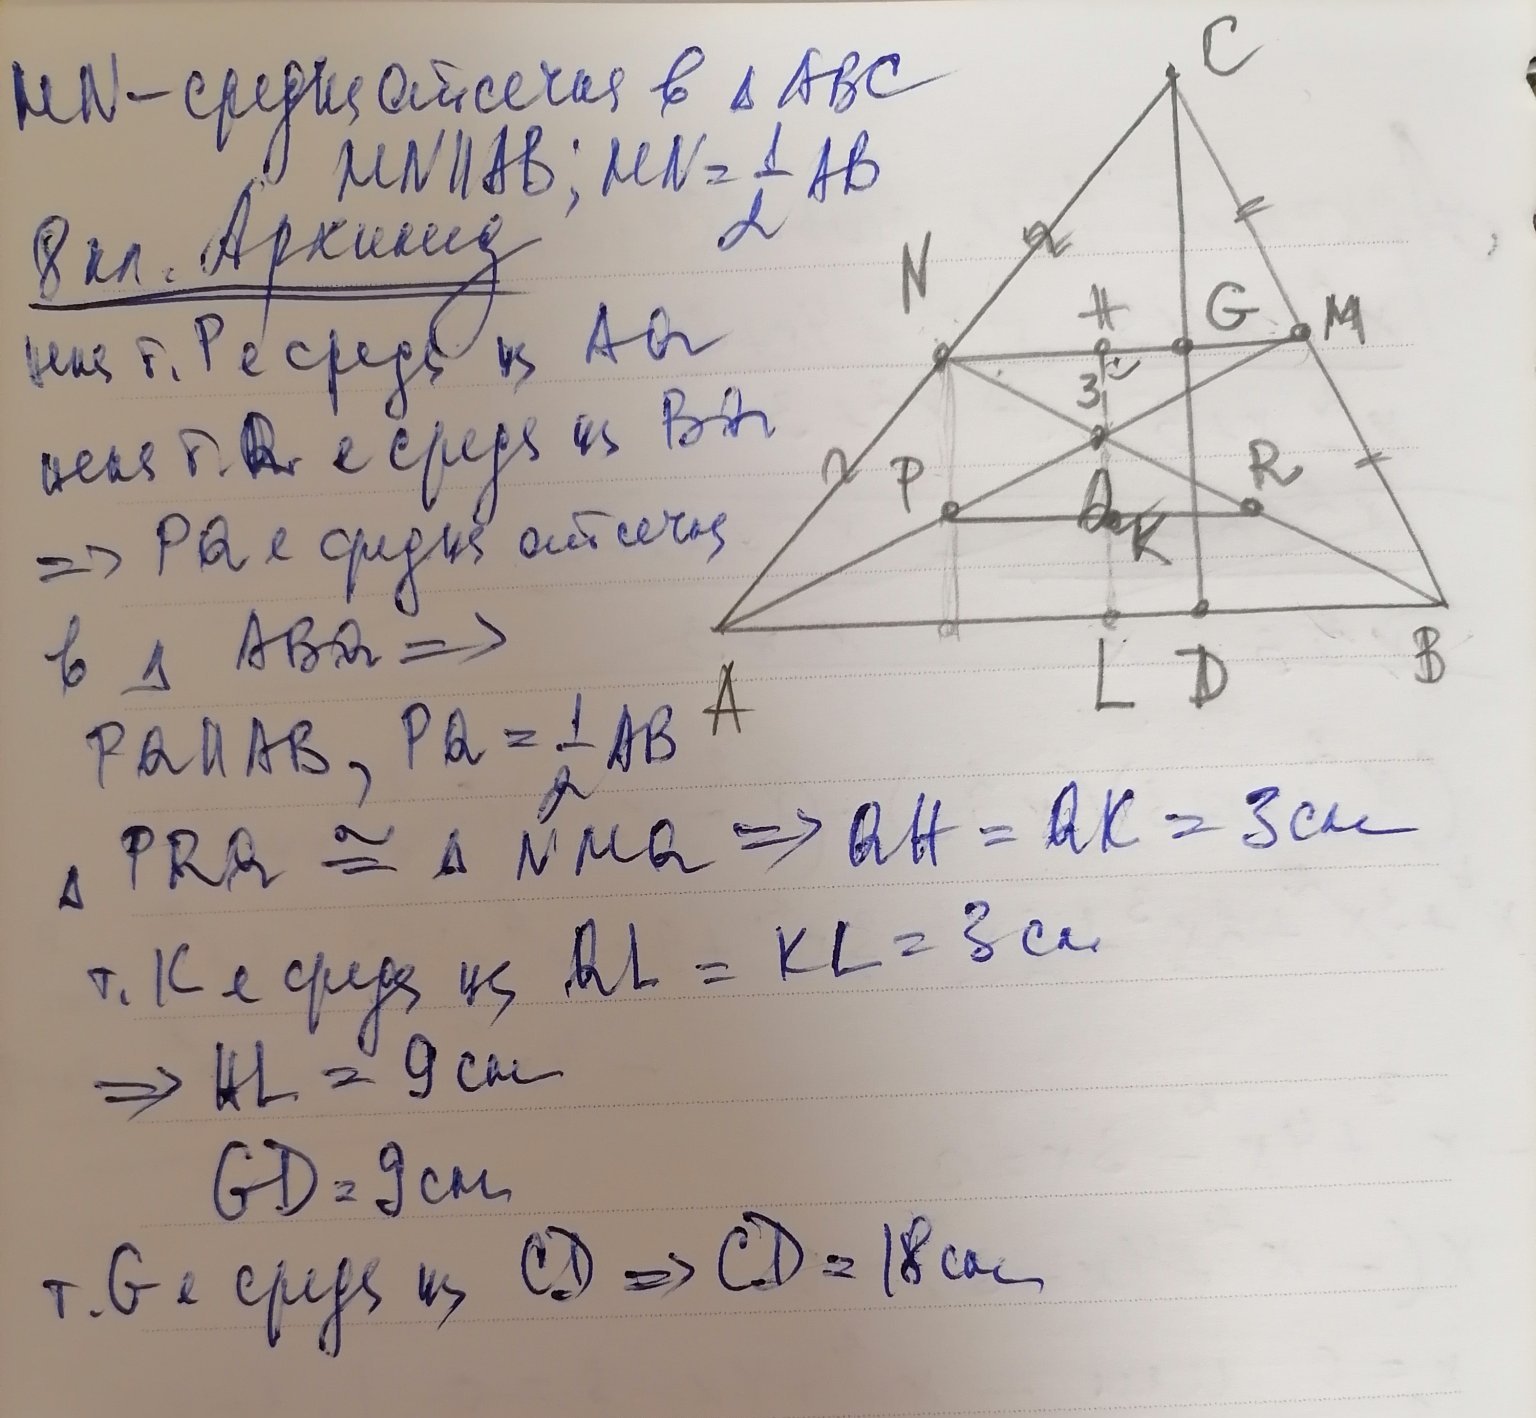 MN – средна отсечка в △ ABC
MN || AB; MN = 1/2 AB
8 кл. Архимед
нека т. P е среда на AQ
нека т. R е среда на BQ
=> PQ е средна отсечка
в △ ABQ =>
PQ || AB, PQ = 1/2 AB
△ PRQ ≅ △ NMQ => QH = QK = 3 см
т. K е среда на QL = KL = 3 см
=> HL = 9 см
GD = 9 см
т. G е среда на CD => CD = 18 см
C
N
H
G
M
3
P
Q
K
R
A
L
D
B